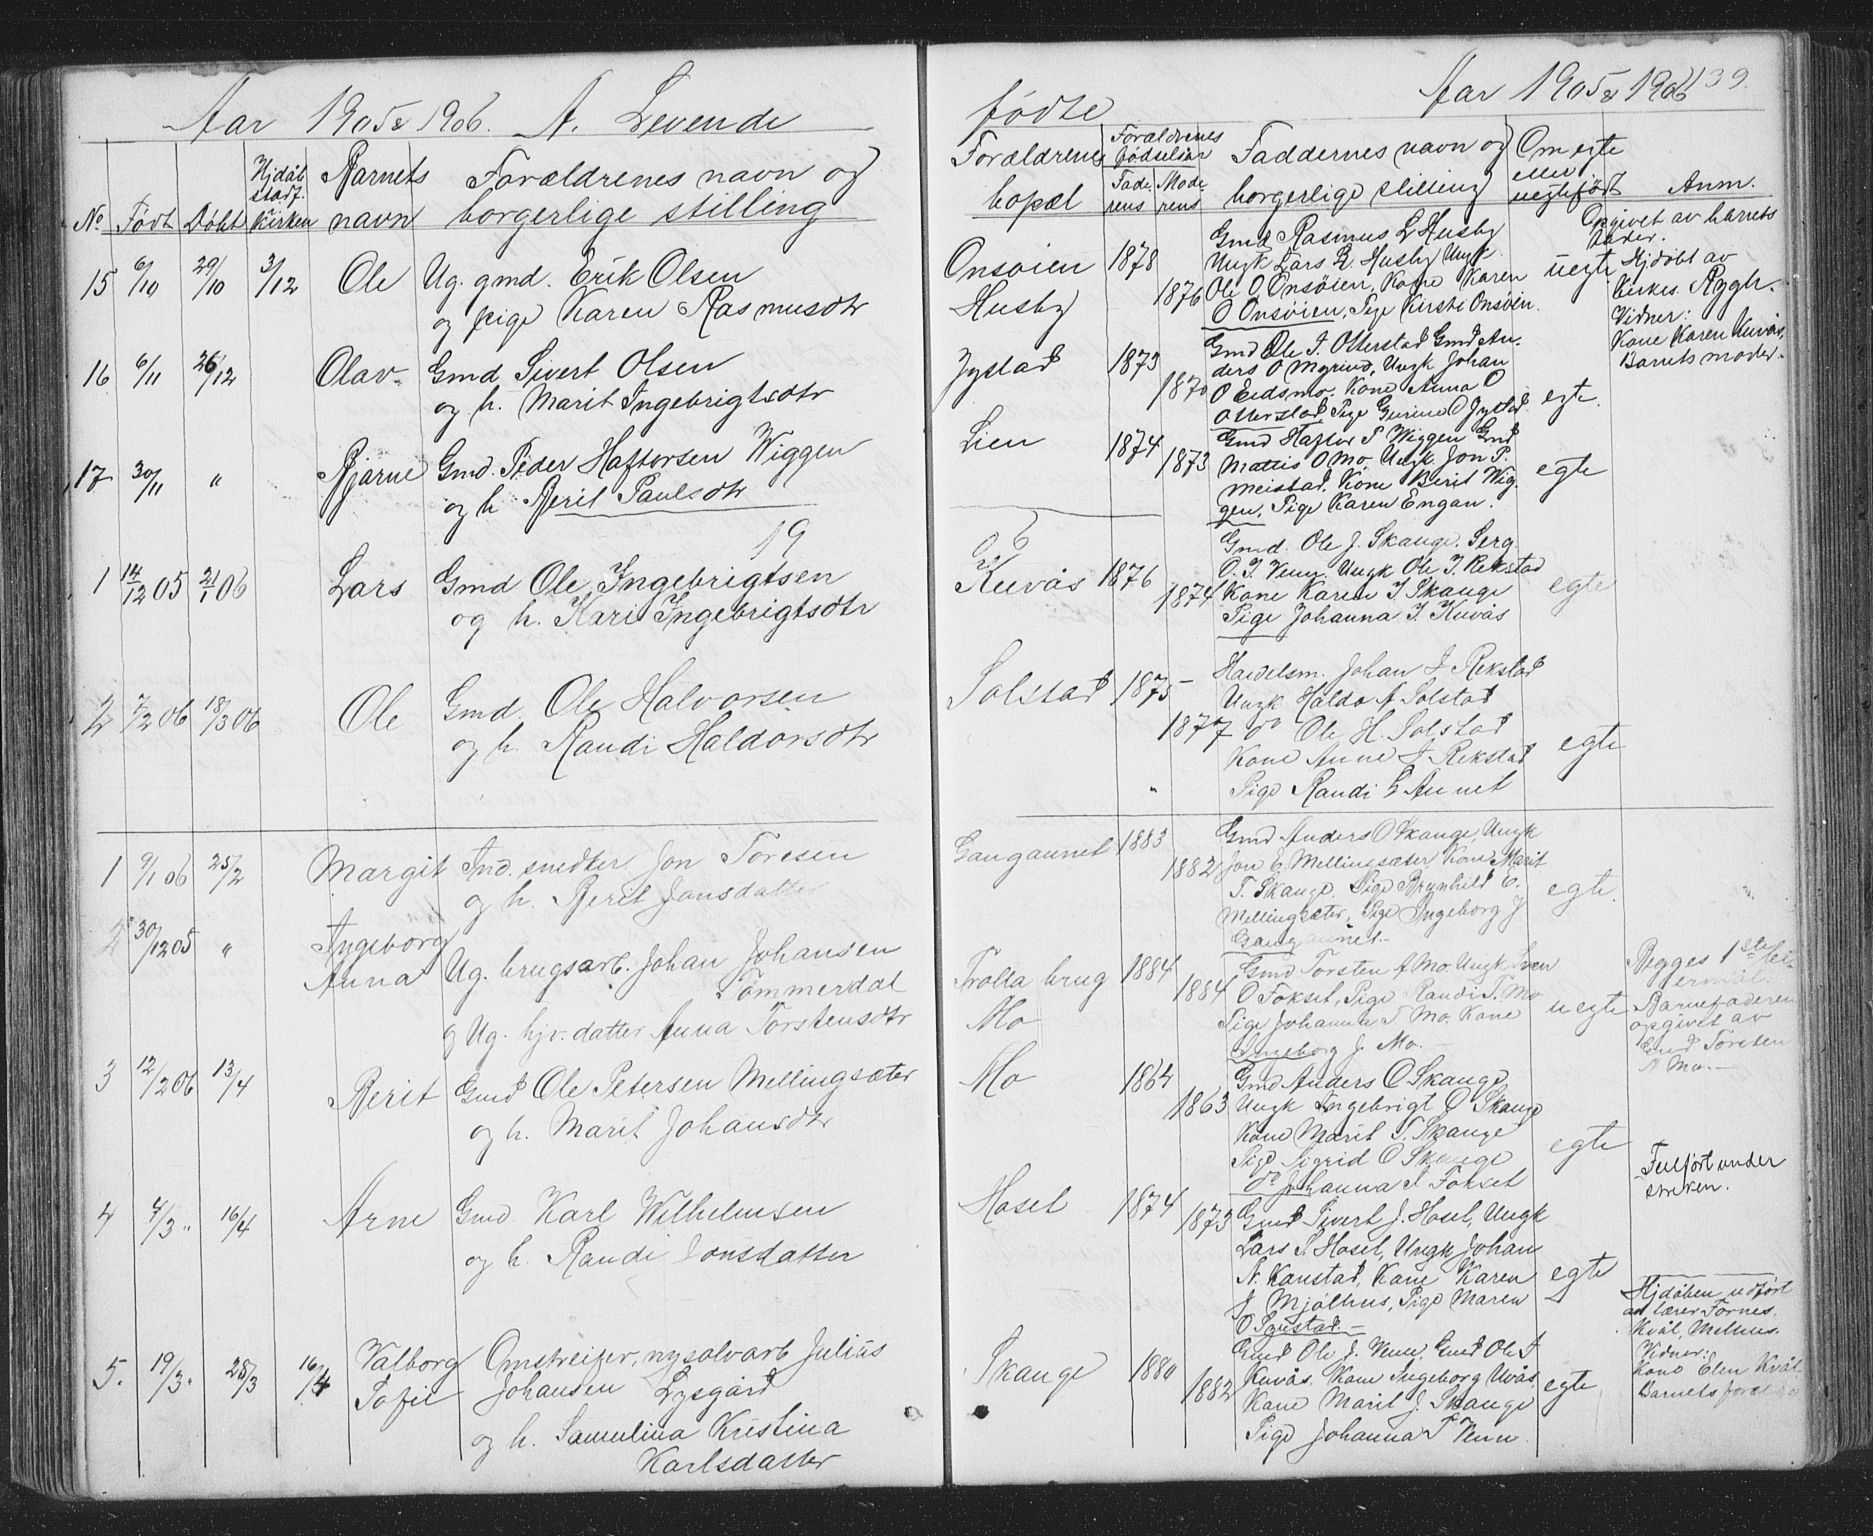 Aar 1905 & 1906. A. Levende
No. Født Døbt Hjdøb stadf. i Kirken Barnets navn Forældrenes navn og borgerlige stilling
15 6/10 29/10 3/12 Ole Ug. gmd. Erik Olsen
og pige Karen Rasmusdtr
16 6/11 26/12 Olav. Gmd Sivert Olsen
og h. Marit Ingebrigtsdtr
17 30/11 " Bjarne Gmd. Peder Haftorsen Wiggen
og h Berit Paulsdtr
19
1 14/12 05 21/1 06 Lars Gmd Ole Ingebrigtsen
og h. Kari Ingebrigtsdtr
2 7/2 06 18/3 06 Ole Gmd Ole Halvorsen
og h. Randi Haldorsdtr
1 9/1 06 25/2 Margit Ind. smedter Jon Toresen
og h. Berit Jonsdatter
2 30/12 05 " Ingeborg
Anna Ug. brugsarb. Johan Johansen
Tømmerdal
og Ug. hjv. datter Anna Torstensdtr
3 12/2 06 13/4 Berit Gmd Ole Petersen Mellingsæter
og h. Marit Johansdtr
4 4/3 " 16/4 Arne Gmd. Karl Wilhelmsen
og h. Randi Jonsdatter
5. 19/3 " 28/3 16/4 Valborg Omstreifer, nysølvarb Julius
Tofie Johansen Lysgård
og h. Samuline Kristina
Karlsdatter
fødte Aar 1905 & 1906 139.
Forældrenes bopæl Forældrenes fødselsår Faderens Moderens Faddernes navn og borgerlige stilling Om egte eller uegtefødt Anm.
Onsøien 1878 Gmd Rasmus L Husby
Ungk Lars R. Husby Ungk
Husby 1876 Ole O Onsøien, Kone Karen
O Onsøien, Pige Kirsti Onsøien. uegte
Opgivet av barnets
fader.
Hjdøbt av
Kone Karen Kuvås,
Vidner:
Barnets moder.
Jystad 1873 Gmd Ole J. Otterstad Gmd An-
ders O Myrmo, Ungk Johan
1870 O Eidsmo. Kone Anna O
Otterstad Pige Gurine O Jystad. egte.
Lien 1874 Gmd Haftor P Wiggen Gmd
1873 Mattis O Mo, Ungk. Jon P.
Meistad. Kone Berit Wig-
gen, Pige Karen Engan. egte
06
Kuvås 1876 Gmd. Ole J. Skauge. Serg.
O. J. Venn. Ungk Ole J. Rekstad
1874 Kone Karen J Skauge
Pige Johanna J. Kuvås egte
Solstad 1875 Handelsm. Johan J Rekstad
Ungk Haldo A Solstad
1877 do Ole H. Solstad
Kone Anne J. Rekstad egte
" Pige Randi L Aunet
Gaugaunet 1883 Gmd Anders O Skauge, Ungk
1882 Jon E. Mellingsæter Kone Marit
T. Skauge. Pige Brynhild E.
Mellingsæter, Pige Ingeborg J
Gaugaunet. egte.
Trolla brug 1884 Gmd Torsten A Mo. Ungk Sven
Mo 1884 O Fokset, Pige Randi T. Mo
Pige Johanna T Mo. Kone
Ingeborg J. Mo. uegte
Begges 1ste lei-
ermål.
Barnefaderen
opgivet av
Gmd Torsten
A Mo.
Mo 1864 Gmd Anders O Skauge
1863 Ungk Ingebrigt O Skauge
Kone Marit T. Skauge
Pige Sigrid O Skauge
do Johanna S Fokset egte
Feilført under
streken.
Hosel 1874 1873 Gmd Sivert J. Hosel, Ungk
Lars S. Hosel, Ungk Johan
N. Kaustad, Kone Karen
J Mjølhus, Pige Maren
O Systad. egte
Skauge 1880 Gmd Ole J. Venn, Gmd Ole I
Kuvås. Kone Ingeborg Uvås
1882 Kone Marit J. Skauge
Pige Johanna T Venn egte
Hjdøben udført
av lærer Fornes.
Kvål, Melhus.
Vidner:
Kone Elen Kvål
Barnets foræld